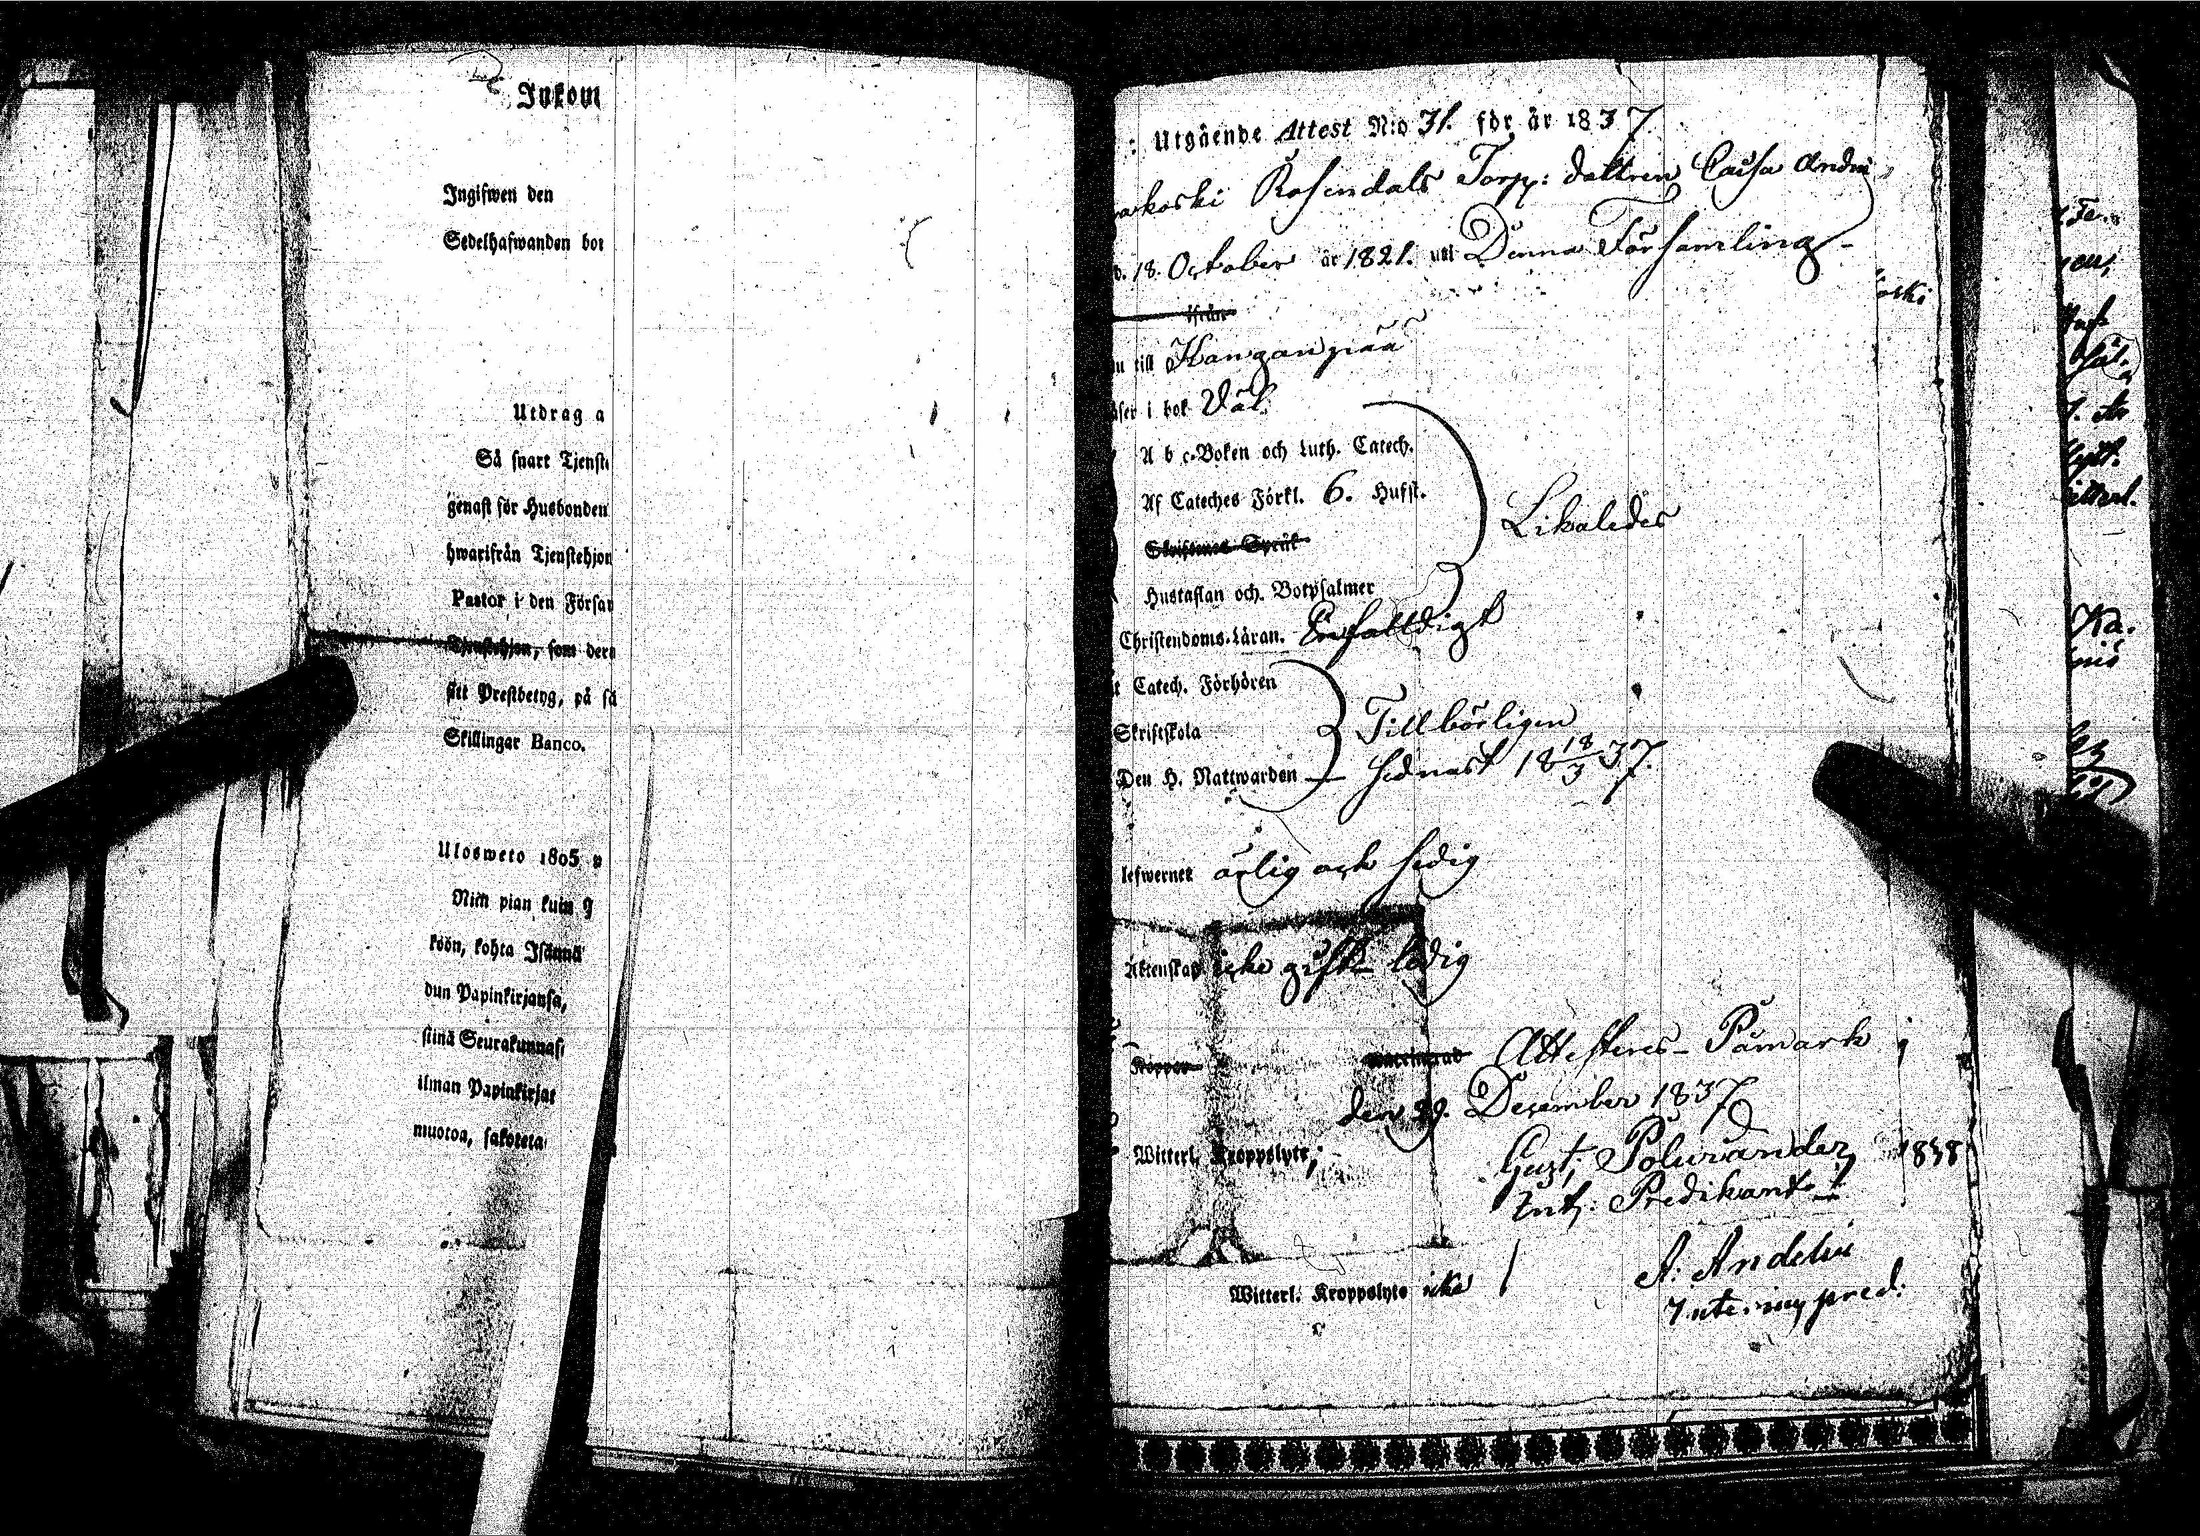 Inkom
Ingifwen den
Sedelhafwanden bor
Utdrag a
Så snart Tjenste
genast för Husbonden
hwarifrån Tjenstehjon
Pastor i den Försam
Tjenstehjon, som dern
sitt Prestbetyg, på så
Skillingar Banco.
Ulosweto 1805
Niin pian kuin
köön, kohta Isännä
dun Papinkirjansa,
stinä Seurakunnas
ilman Papinkirjat
muotoa, sakoteta
Utgående Attest N:o 31. för år 1837.
akoski Rosendals Torp: dottren Caisa Andri
d. 18. October år 1821. uti Denna Församling
ifrån
oski
till Kanganpää
läser i bok Väl.
A b c-Boken och Luth. Catech.
Af Cateches Förkl. 6. Hufst.
Likaledes
Skriftenes Språk
Hustaflan och Botpsalmer
Christendoms-Läran. Enfaldigt
Catech. Förhören
Skriftskola Tillbörligen
Den H. Nattwarden sednast 18 18/3 37.
lefwernet ärlig och sedig
Äktenskap icke gift ledig
Koppor vaccinerad Attesteres Påmark
den 29. December 1837
Witterl. Kroppslyte, Gust; Polviander 1838
Int: Predikant
A: Andelin
Witterl. Kroppslyte icke
Interims pred: